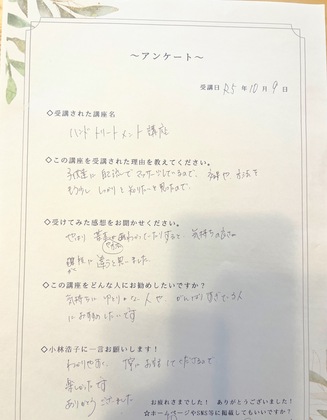 ～アンケート～
受講日 R5 年 10 月 9 日
◇受講された講座名
ハンドトリートメント講座
◇この講座を受講された理由を教えてください。
自己流でマッサージしているので、
もう少ししっかりと知りたいと思ったので
◇受けてみた感想をお聞かせください。
やはり 気持ちの良さが
違うと思いました
◇この講座をどんな人にお勧めしたいですか？
気持ちにゆとりのない人や、がんばりすぎている人
にお勧めしたいです
◇小林浩子に一言お願いします！
わかりやすい 丁寧にお話してくださるので
楽しかったです
ありがとうございました
お疲れさまでした！ ありがとうございました！
☆ホームページやSNS等に掲載してもいいですか？